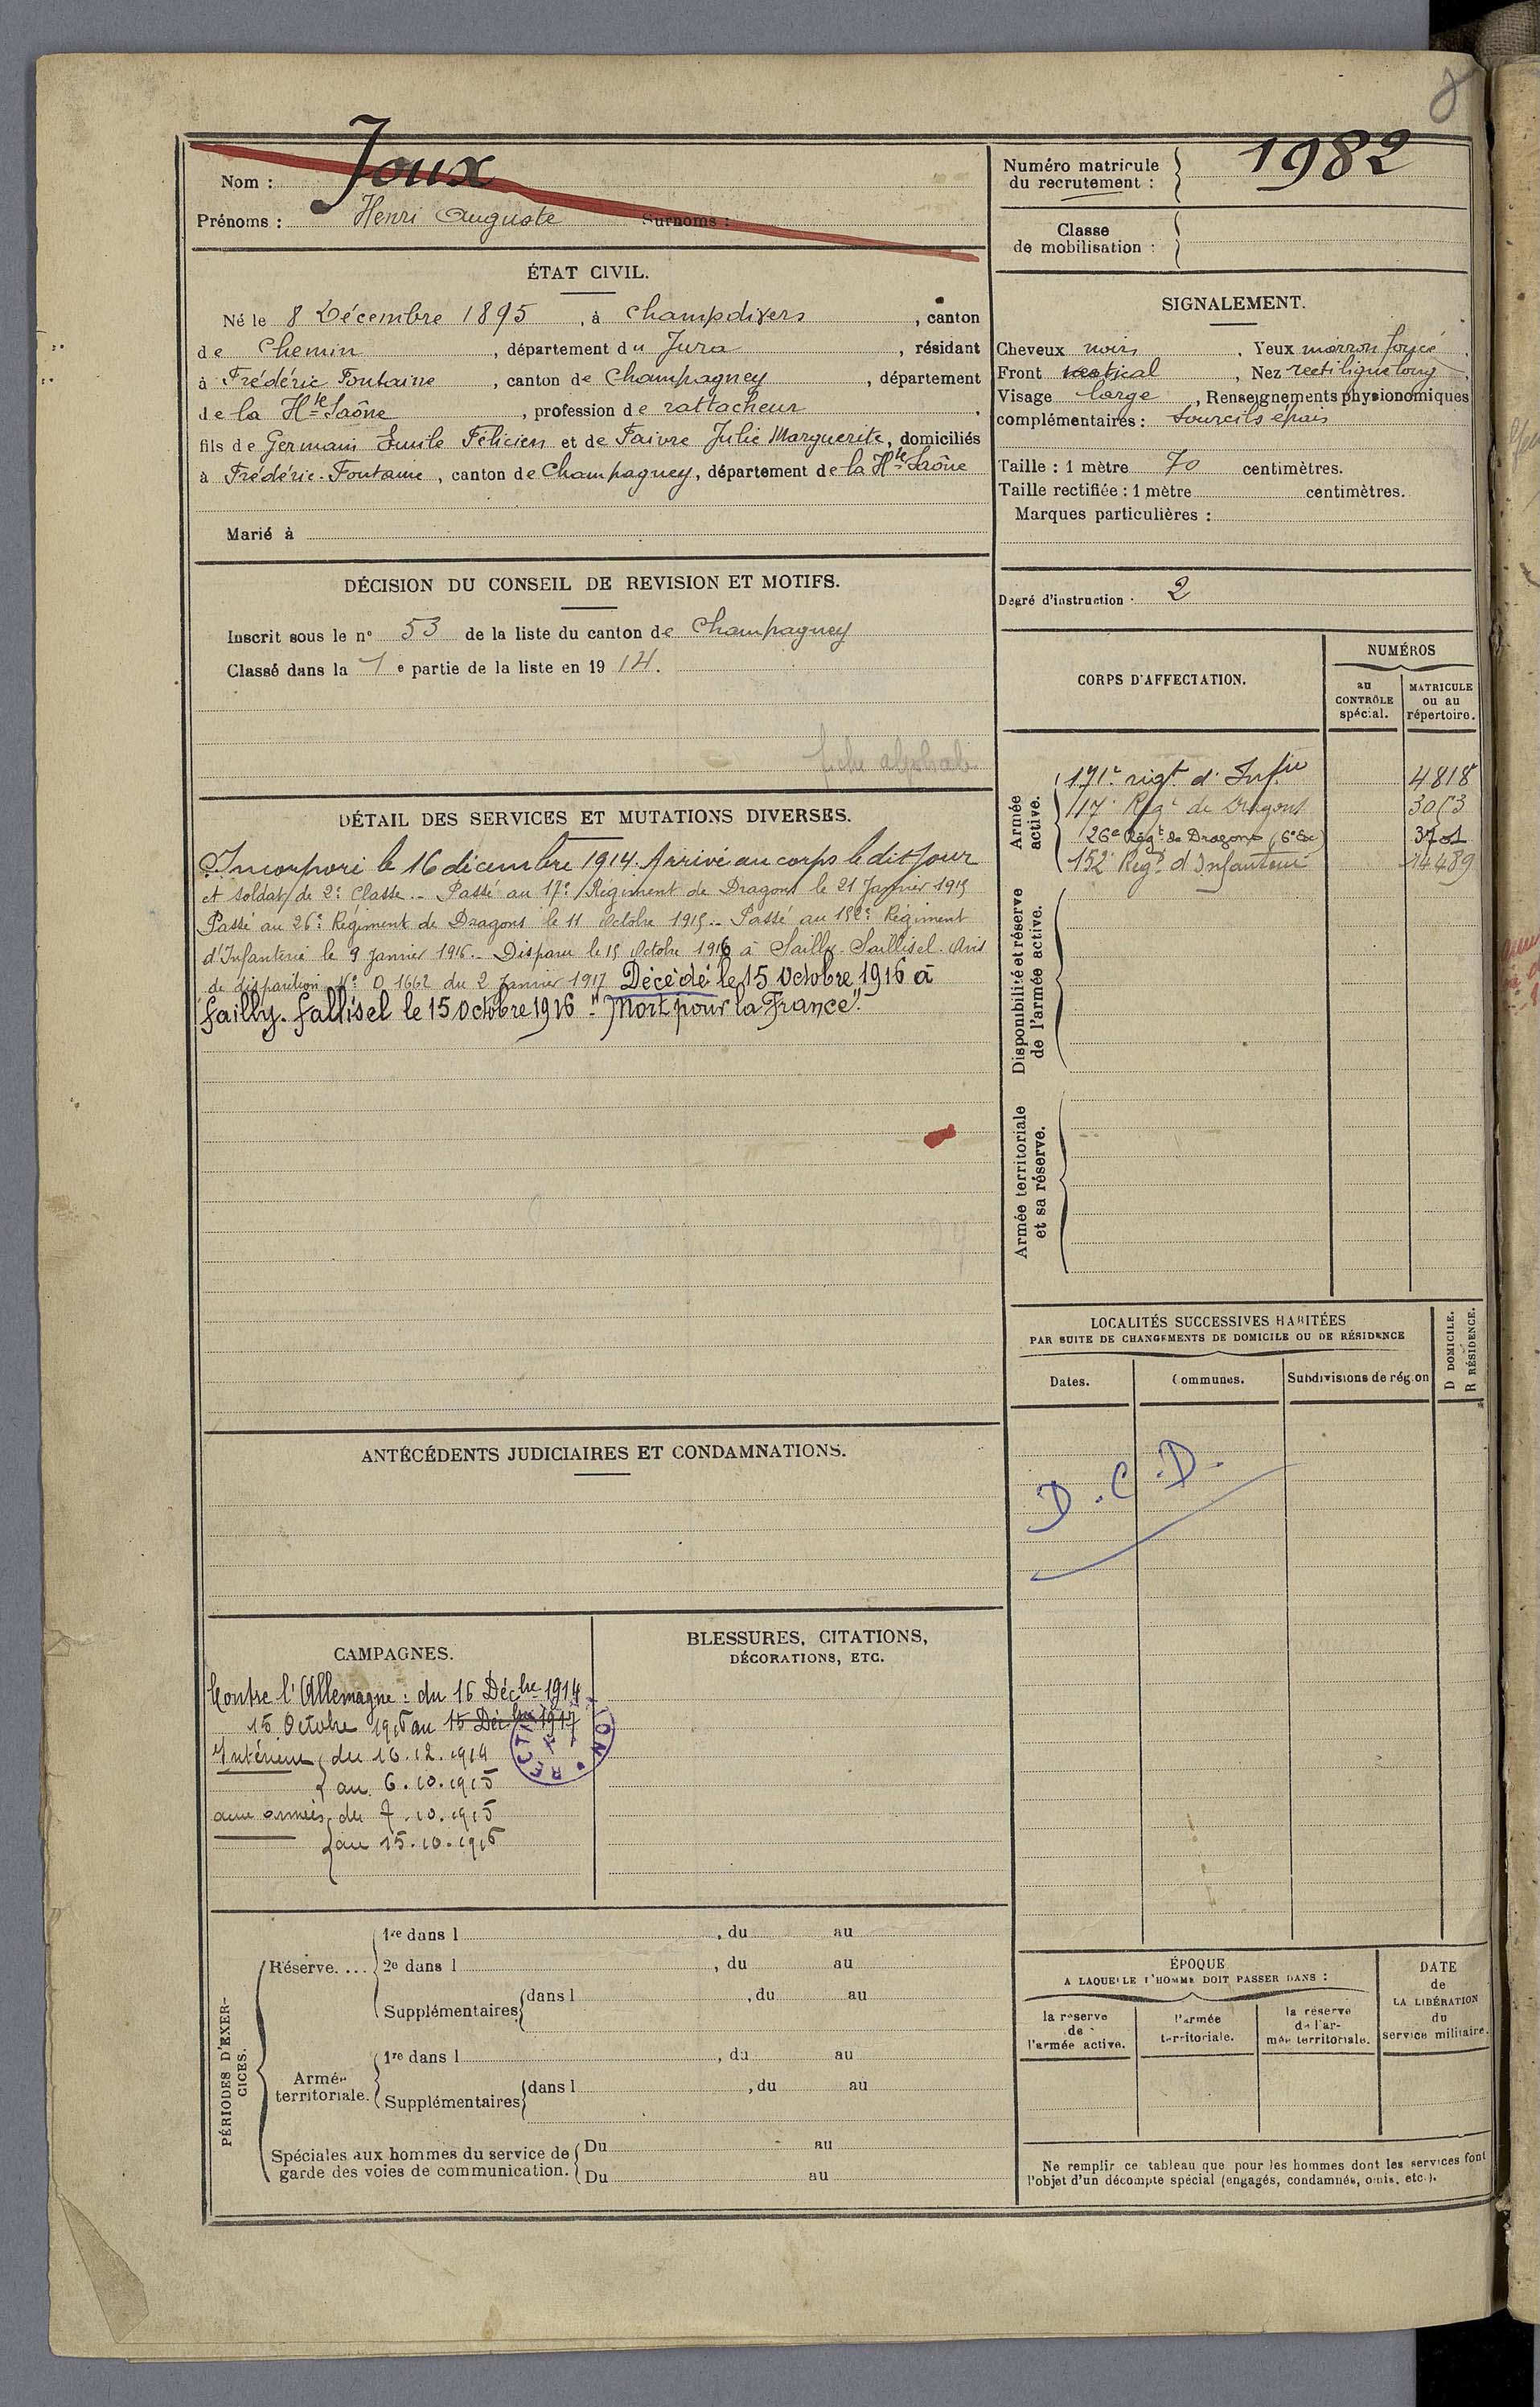 8
Nom : Joux
Prénoms : Henri Auguste Surnoms :
Numéro matricule du recrutement : 1982
Classe de mobilisation :
ÉTAT CIVIL.
Né le 8 Décembre 1895, à Champdivers, canton
de Chemin, département du Jura, résidant
à Frédéric Fontaine, canton de Champagney, département
de la Hte Saône, profession de rattacheur,
fils de Germain Emile Félicien et de Faivre Julie Marguerite, domiciliés
à Frédéric-Fontaine, canton de Champagney, département de la Hte Saône
Marié à
SIGNALEMENT.
Cheveux noirs, Yeux marron foncé,
Front vertical, Nez rectiligne long,
Visage large, Renseignements physionomiques
complémentaires : Sourcils épais
Taille : 1 mètre 70 centimètres.
Taille rectifiée : 1 mètre centimètres.
Marques particulières :
Degré d'instruction : 2
DÉCISION DU CONSEIL DE REVISION ET MOTIFS.
Inscrit sous le n° 53 de la liste du canton de Champagney
Classé dans la 1e partie de la liste en 1914.
DÉTAIL DES SERVICES ET MUTATIONS DIVERSES.
Incorporé le 16 décembre 1914. Arrivé au corps le dit jour
et soldat de 2e Classe.- Passé au 17e Régiment de Dragons le 21 Janvier 1915
Passé au 26e Régiment de Dragons le 11 Octobre 1915.- Passé au 152e Régiment
d'Infanterie le 9 Janvier 1916.- Disparu le 15 Octobre 1916 à Sailly-Saillisel. Avis
de disparition N° D 1662 du 2 Janvier 1917 Décédé le 15 Octobre 1916 à
Sailly-Sallisel le 15 Octobre 1916 - "Mort pour la France".
CORPS D'AFFECTATION.
NUMÉROS
au CONTRÔLE spécial.
MATRICULE ou au répertoire.
Armée active.
171e régt d'Infie 4818
17e Régt de Dragons 3053
26e Régt de Dragons (6e Er) 3701
152e Régt d'Infanterie 14489
Disponibilité et réserve de l'armée active.
Armée territoriale et sa réserve.
LOCALITÉS SUCCESSIVES HABITÉES
PAR SUITE DE CHANGEMENTS DE DOMICILE OU DE RÉSIDENCE
D DOMICILE.
R RÉSIDENCE.
Dates. Communes. Subdivisions de région
D.C.D.
ANTÉCÉDENTS JUDICIAIRES ET CONDAMNATIONS.
CAMPAGNES.
Contre l'Allemagne : du 16 Décbre 1914
15 Octobre 1916 au 15 Décbre 1917
Intérieur du 16.12.1914
au 6.10.1915
aux armées du 7.10.1915
au 15.10.1916
BLESSURES, CITATIONS,
DÉCORATIONS, ETC.
PÉRIODES D'EXERCICES.
Réserve....
1re dans l , du au
2e dans l , du au
Supplémentaires dans l , du au
Armée territoriale.
1re dans l , du au
Supplémentaires dans l , du au
Spéciales aux hommes du service de garde des voies de communication.
Du au
Du au
ÉPOQUE
A LAQUELLE L'HOMME DOIT PASSER DANS :
la réserve de l'armée active.
l'armée territoriale.
la réserve de l'armée territoriale.
DATE de LA LIBÉRATION du service militaire.
Ne remplir ce tableau que pour les hommes dont les services font
l'objet d'un décompte spécial (engagés, condamnés, omis, etc.).